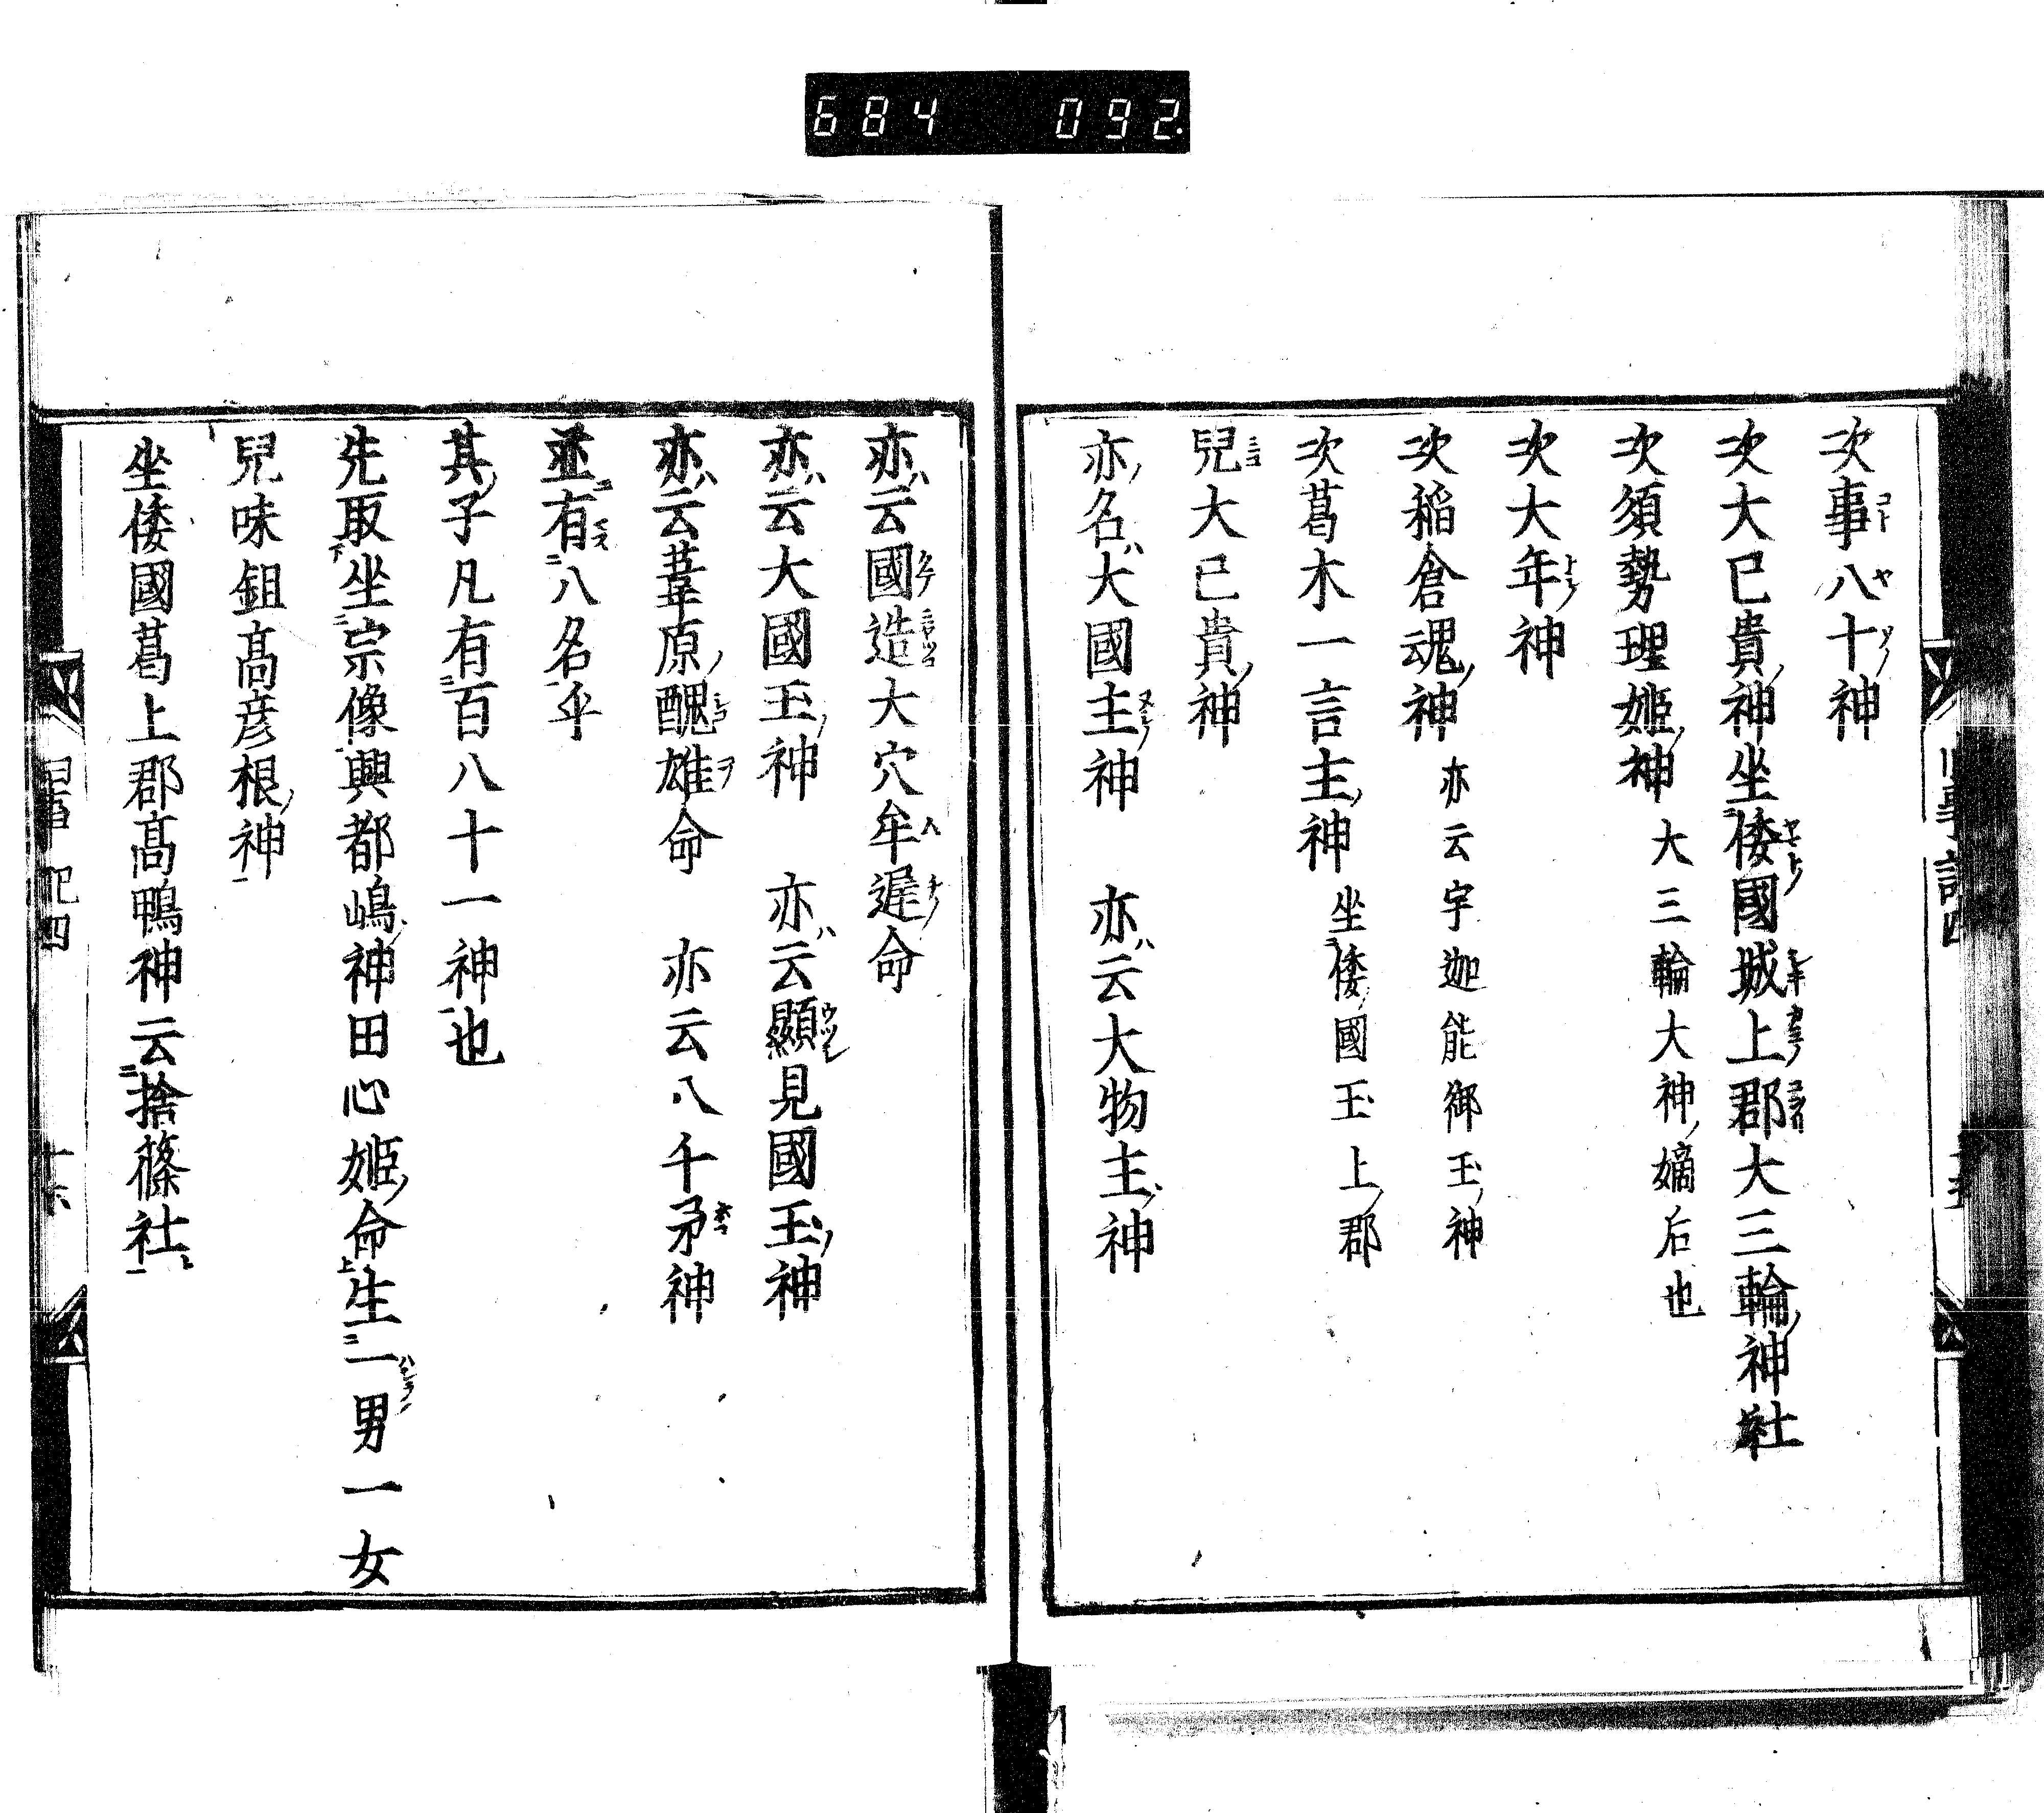 684 092
次事八十神
次大已貴神坐倭國城上郡大三輪神社
次須勢理姫神 大三輪大神嫡后也
次大年神
次稲倉魂神 亦云宇迦能御玉神
次葛木一言主神 坐倭國玉上郡
兒大已貴神
亦名大國主神 亦云大物主神
亦云國造大穴牟遲命
亦云大國玉神 亦云顯見國玉神
亦云葦原醜雄命 亦云八千矛神
並有八名乎
其子凡有百八十一神也
先取坐宗像興都嶋神田心姫命生一男一女
兒味鉏高彦根神
坐倭國葛上郡高鴨神云捨篠社